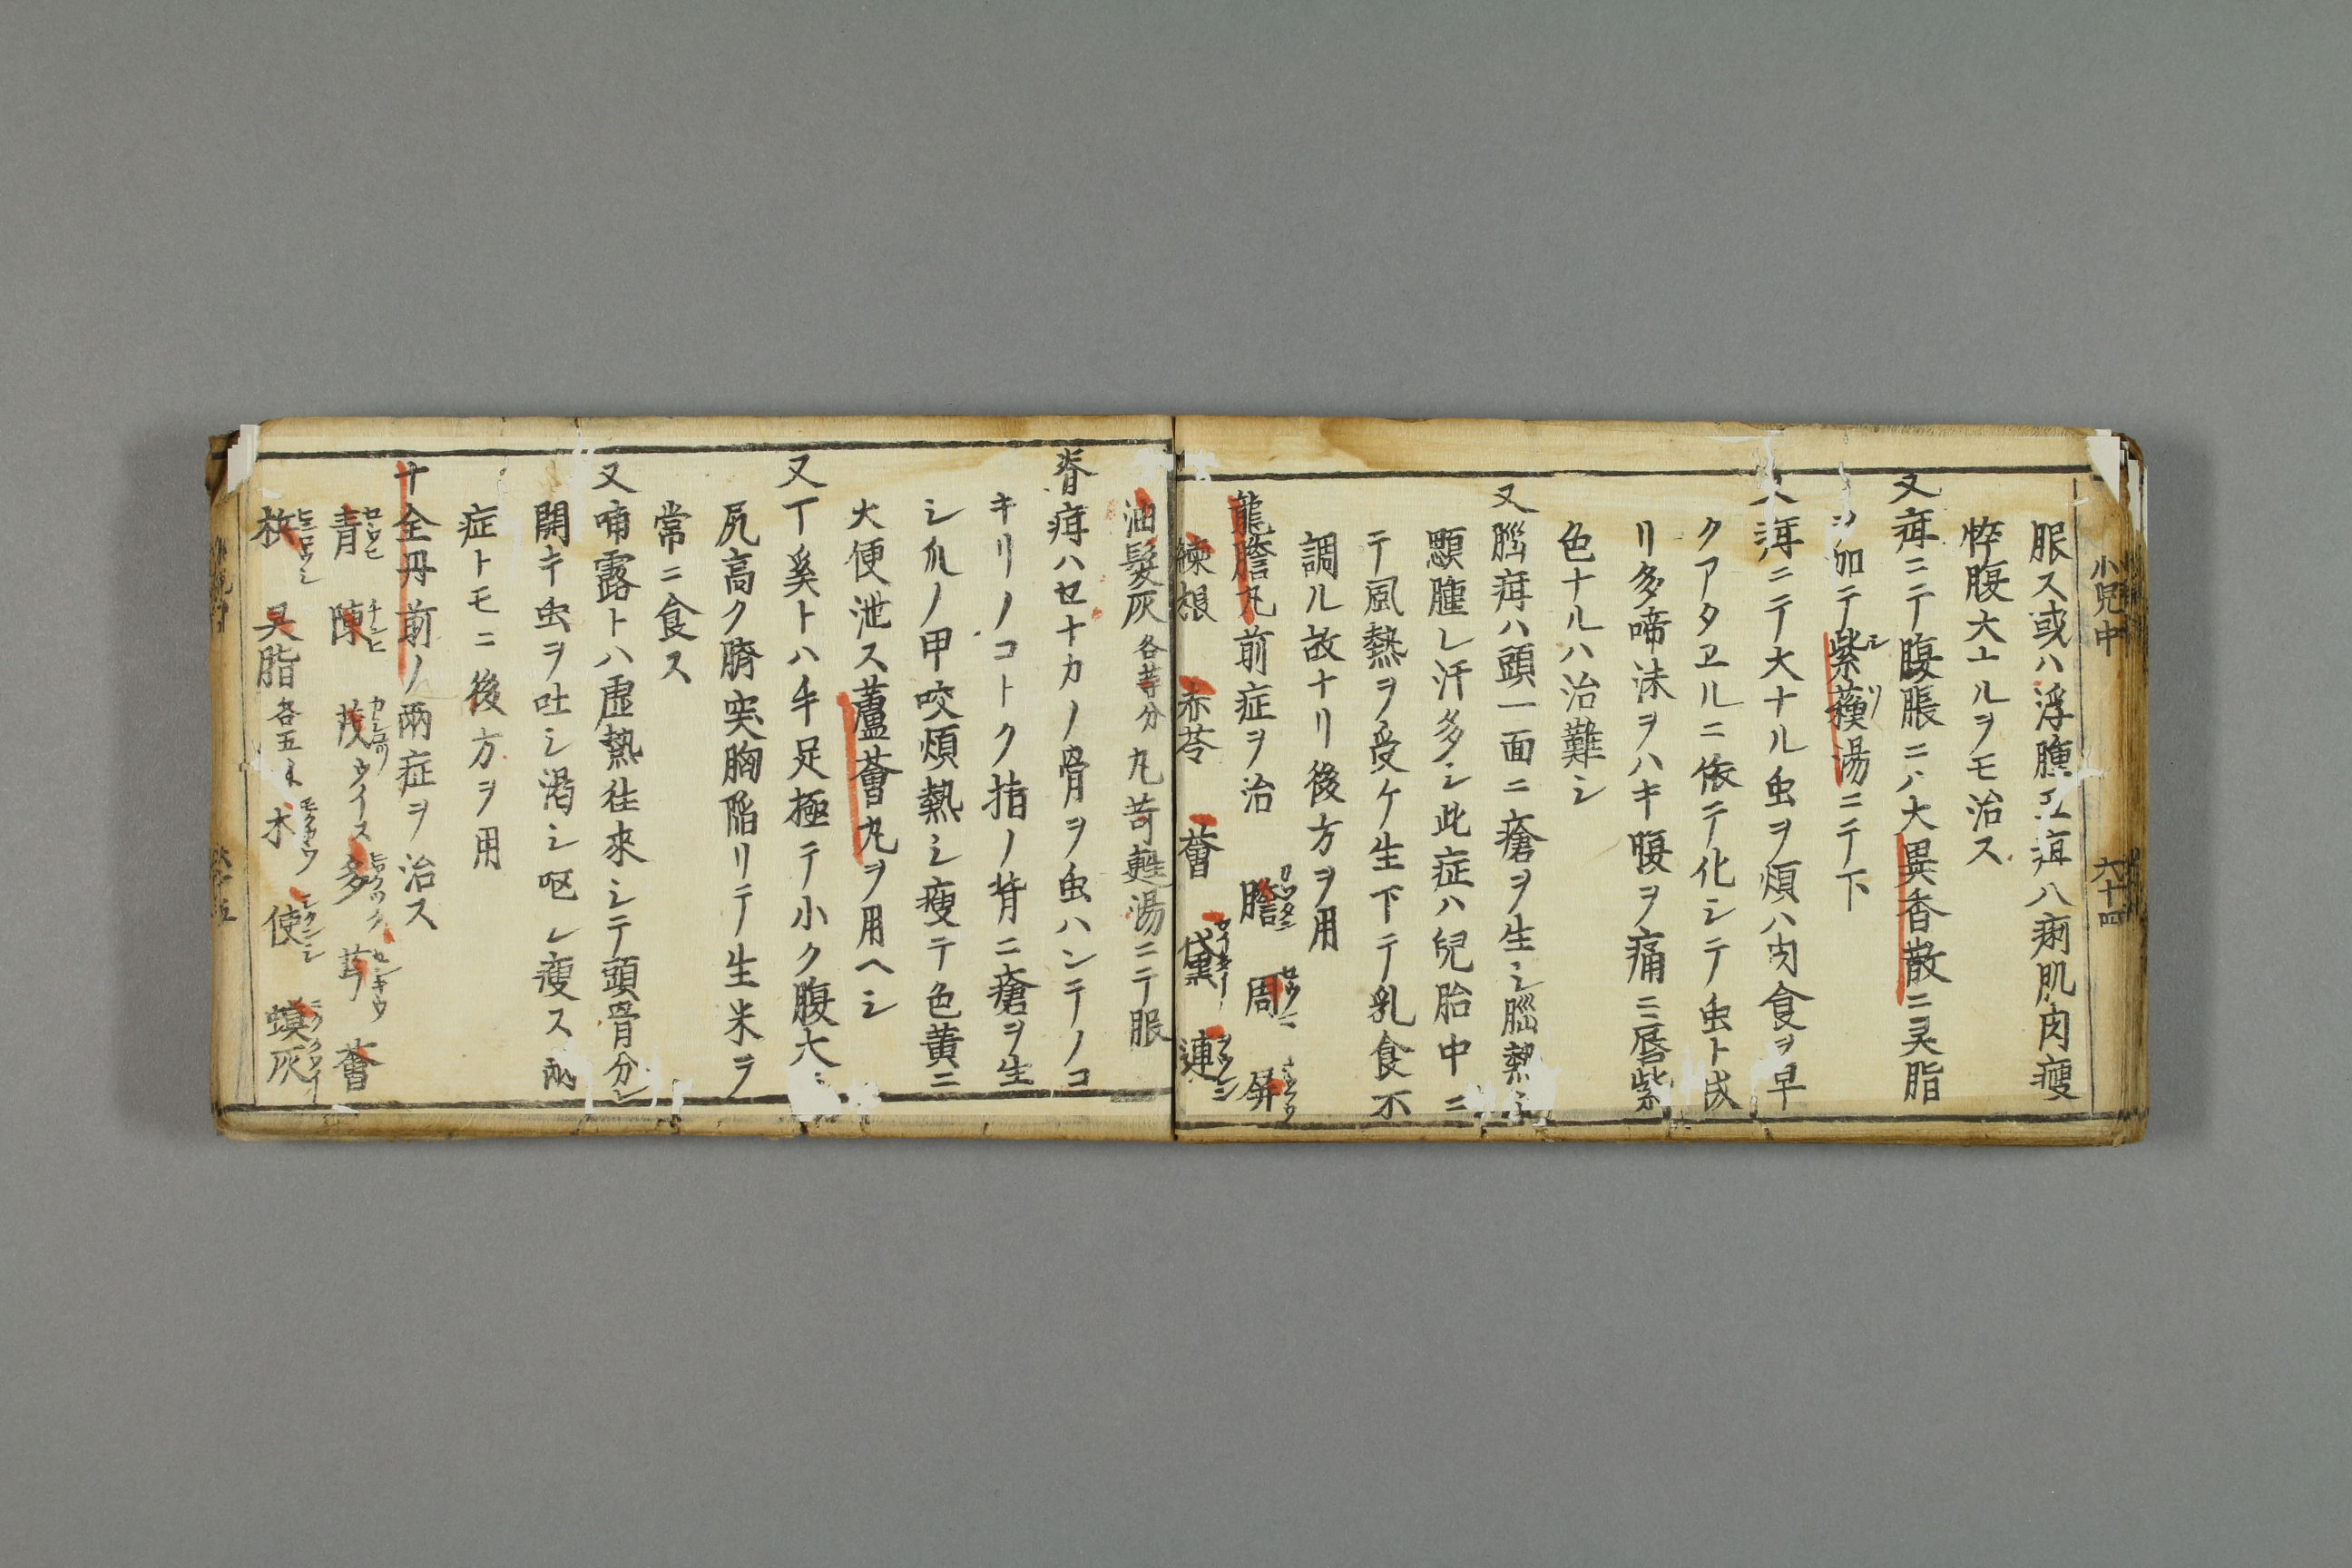 小兒中 六十四
服ス或ハ浮腫疳八痢肌肉瘦
悴腹大ナルヲモ治ス
又疳ニテ腹脹ニハ大異香散ニ灵脂
ヲ加テ紫蘓湯ニテ下
又疳ニテ大ナル虫ヲ煩ハ肉食ヲ早
クアタヱルニ依テ化シテ虫ト成
リ多啼沫ヲハキ腹ヲ痛ミ唇紫
色ナルハ治難シ
又脳疳ハ頭一面ニ瘡ヲ生シ脳熱シ
顋腫レ汗多シ此症ハ兒胎中ニ
テ風熱ヲ受ケ生下テ乳食不
調ル故ナリ後方ヲ用
龍膽丸前症ヲ治 膽 周 屏
練根 赤苓 薈 黛 連
油髮灰各等分丸苛甦湯ニテ服
脊疳ハセナカノ骨ヲ虫ハンテノコ
キリノコトク指ノ背ニ瘡ヲ生
シ爪ノ甲咬煩熱シ瘦テ色黄ニ
大便泄ス蘆薈丸ヲ用ヘシ
又丁奚トハ手足極テ小ク腹大ニ
尻高ク臍突胸陥リテ生米ヲ
常ニ食ス
又哺露トハ虚熱往來シテ頭骨分シ
開キ虫ヲ吐シ渇シ呕レ瘦ス两
症トモニ後方ヲ用
十全丹前ノ兩症ヲ治ス
青 陳 莪ウイス多 芎 薈
枚 灵脂各五 木 使 蟆灰